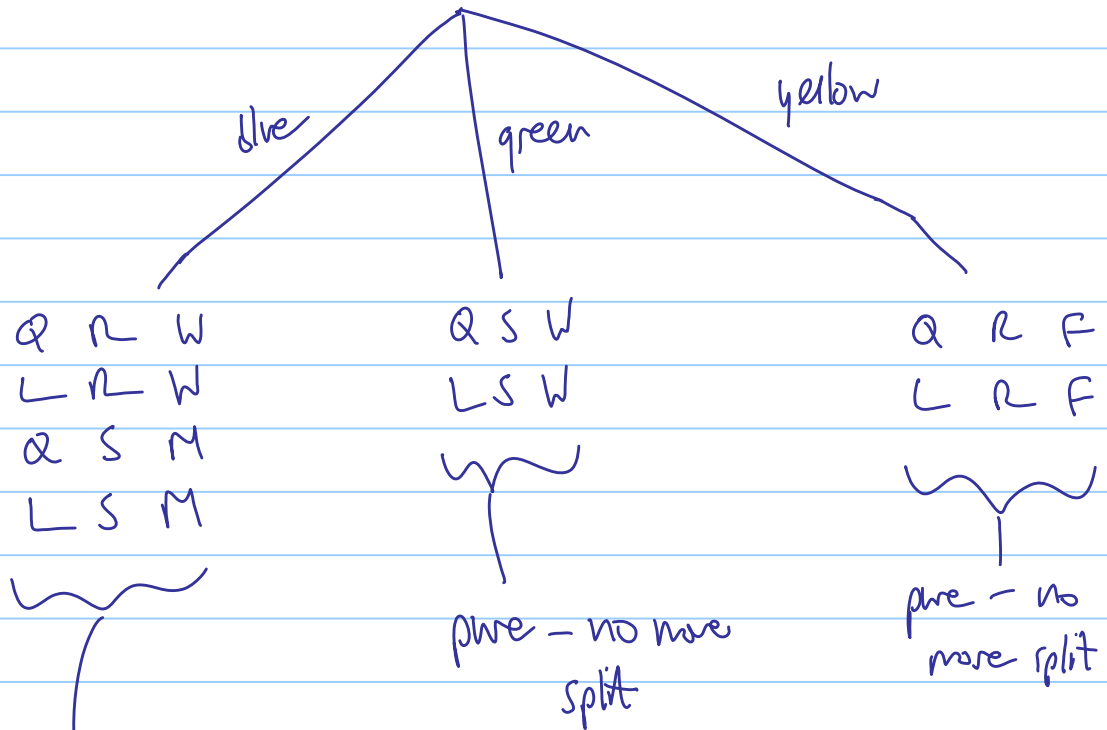 blue
green
yellow
Q R W
L R W
Q S M
L S M
Q S W
L S W
pure - no more
split
Q R F
L R F
pure - no
more split